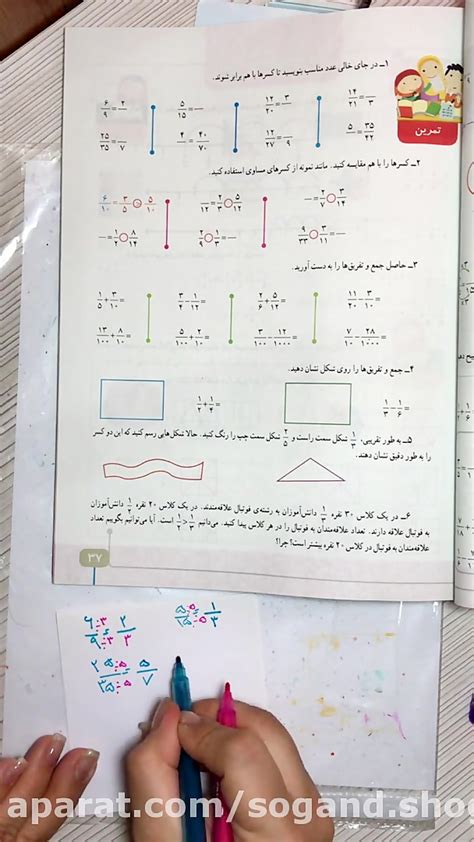 تمرین
۱ــ در جای خالی عدد مناسب بنویسید تا کسرها با هم برابر شوند.
۶/۹ = ۲/— ۵/۱۵ = — ۱۲/۲۰ = ۳/— ۱۴/۲۱ = —/۳
۲۵/۳۵ = —/۷ ۴/— = ۴۰/۷۰ ۱۲/۲۷ = —/۹ ۵/— = ۳۵/۴۲
۲ــ کسرها را با هم مقایسه کنید. مانند نمونه از کسرهای مساوی استفاده کنید.
۶/۱۰ = ۳/۵ ○ ۵/۱۰ —/۱۲ = ۲/۳ ○ ۵/۱۲ — = ۲/۷ ○ ۳/۱۴
— = ۱/۲ ○ ۸/۱۴ ۲/۹ ○ ۱/۳ = — ۹/۳۳ ○ ۳/۱۱ = —
۳ــ حاصل جمع و تفریق‌ها را به دست آورید.
۱/۵ + ۳/۱۰ ۳/۴ − ۱/۱۲ ۲/۶ + ۵/۱۲ ۱۱/۲۰ − ۳/۱۰
۱۳/۱۰۰ + ۸/۱۰ ۵/۱۰۰ + ۲/۱۰ ۳/۱۰۰ − ۱۲/۱۰۰۰ ۷/۱۰ − ۲۸/۱۰۰۰
۴ــ جمع و تفریق‌ها را روی شکل نشان دهید.
۱/۲ + ۱/۴ ۱/۳ − ۱/۶
۵ــ به طور تقریبی، ۱/۳ شکل سمت راست و ۲/۵ شکل سمت چپ را رنگ کنید. حالا شکل‌هایی رسم کنید که این دو کسر
را به طور دقیق نشان دهند.
۶ــ در یک کلاس ۳۰ نفره ۱/۳ دانش‌آموزان به رشته‌ی فوتبال علاقه‌مندند. در یک کلاس ۲۰ نفره ۱/۲ دانش‌آموزان
به فوتبال علاقه دارند. تعداد علاقه‌مندان به فوتبال را در هر کلاس پیدا کنید. می‌دانیم ۱/۲ > ۱/۳ است. آیا می‌توانیم بگوییم تعداد
علاقه‌مندان به فوتبال در کلاس ۲۰ نفره بیشتر است؟ چرا؟
۳۷
۶÷۳/۹÷۳ = ۲/۳ ۵÷۵/۱۵÷۵ = ۱/۳
۲۵÷۵/۳۵÷۵ = ۵/۷
aparat.com/sogand.shog